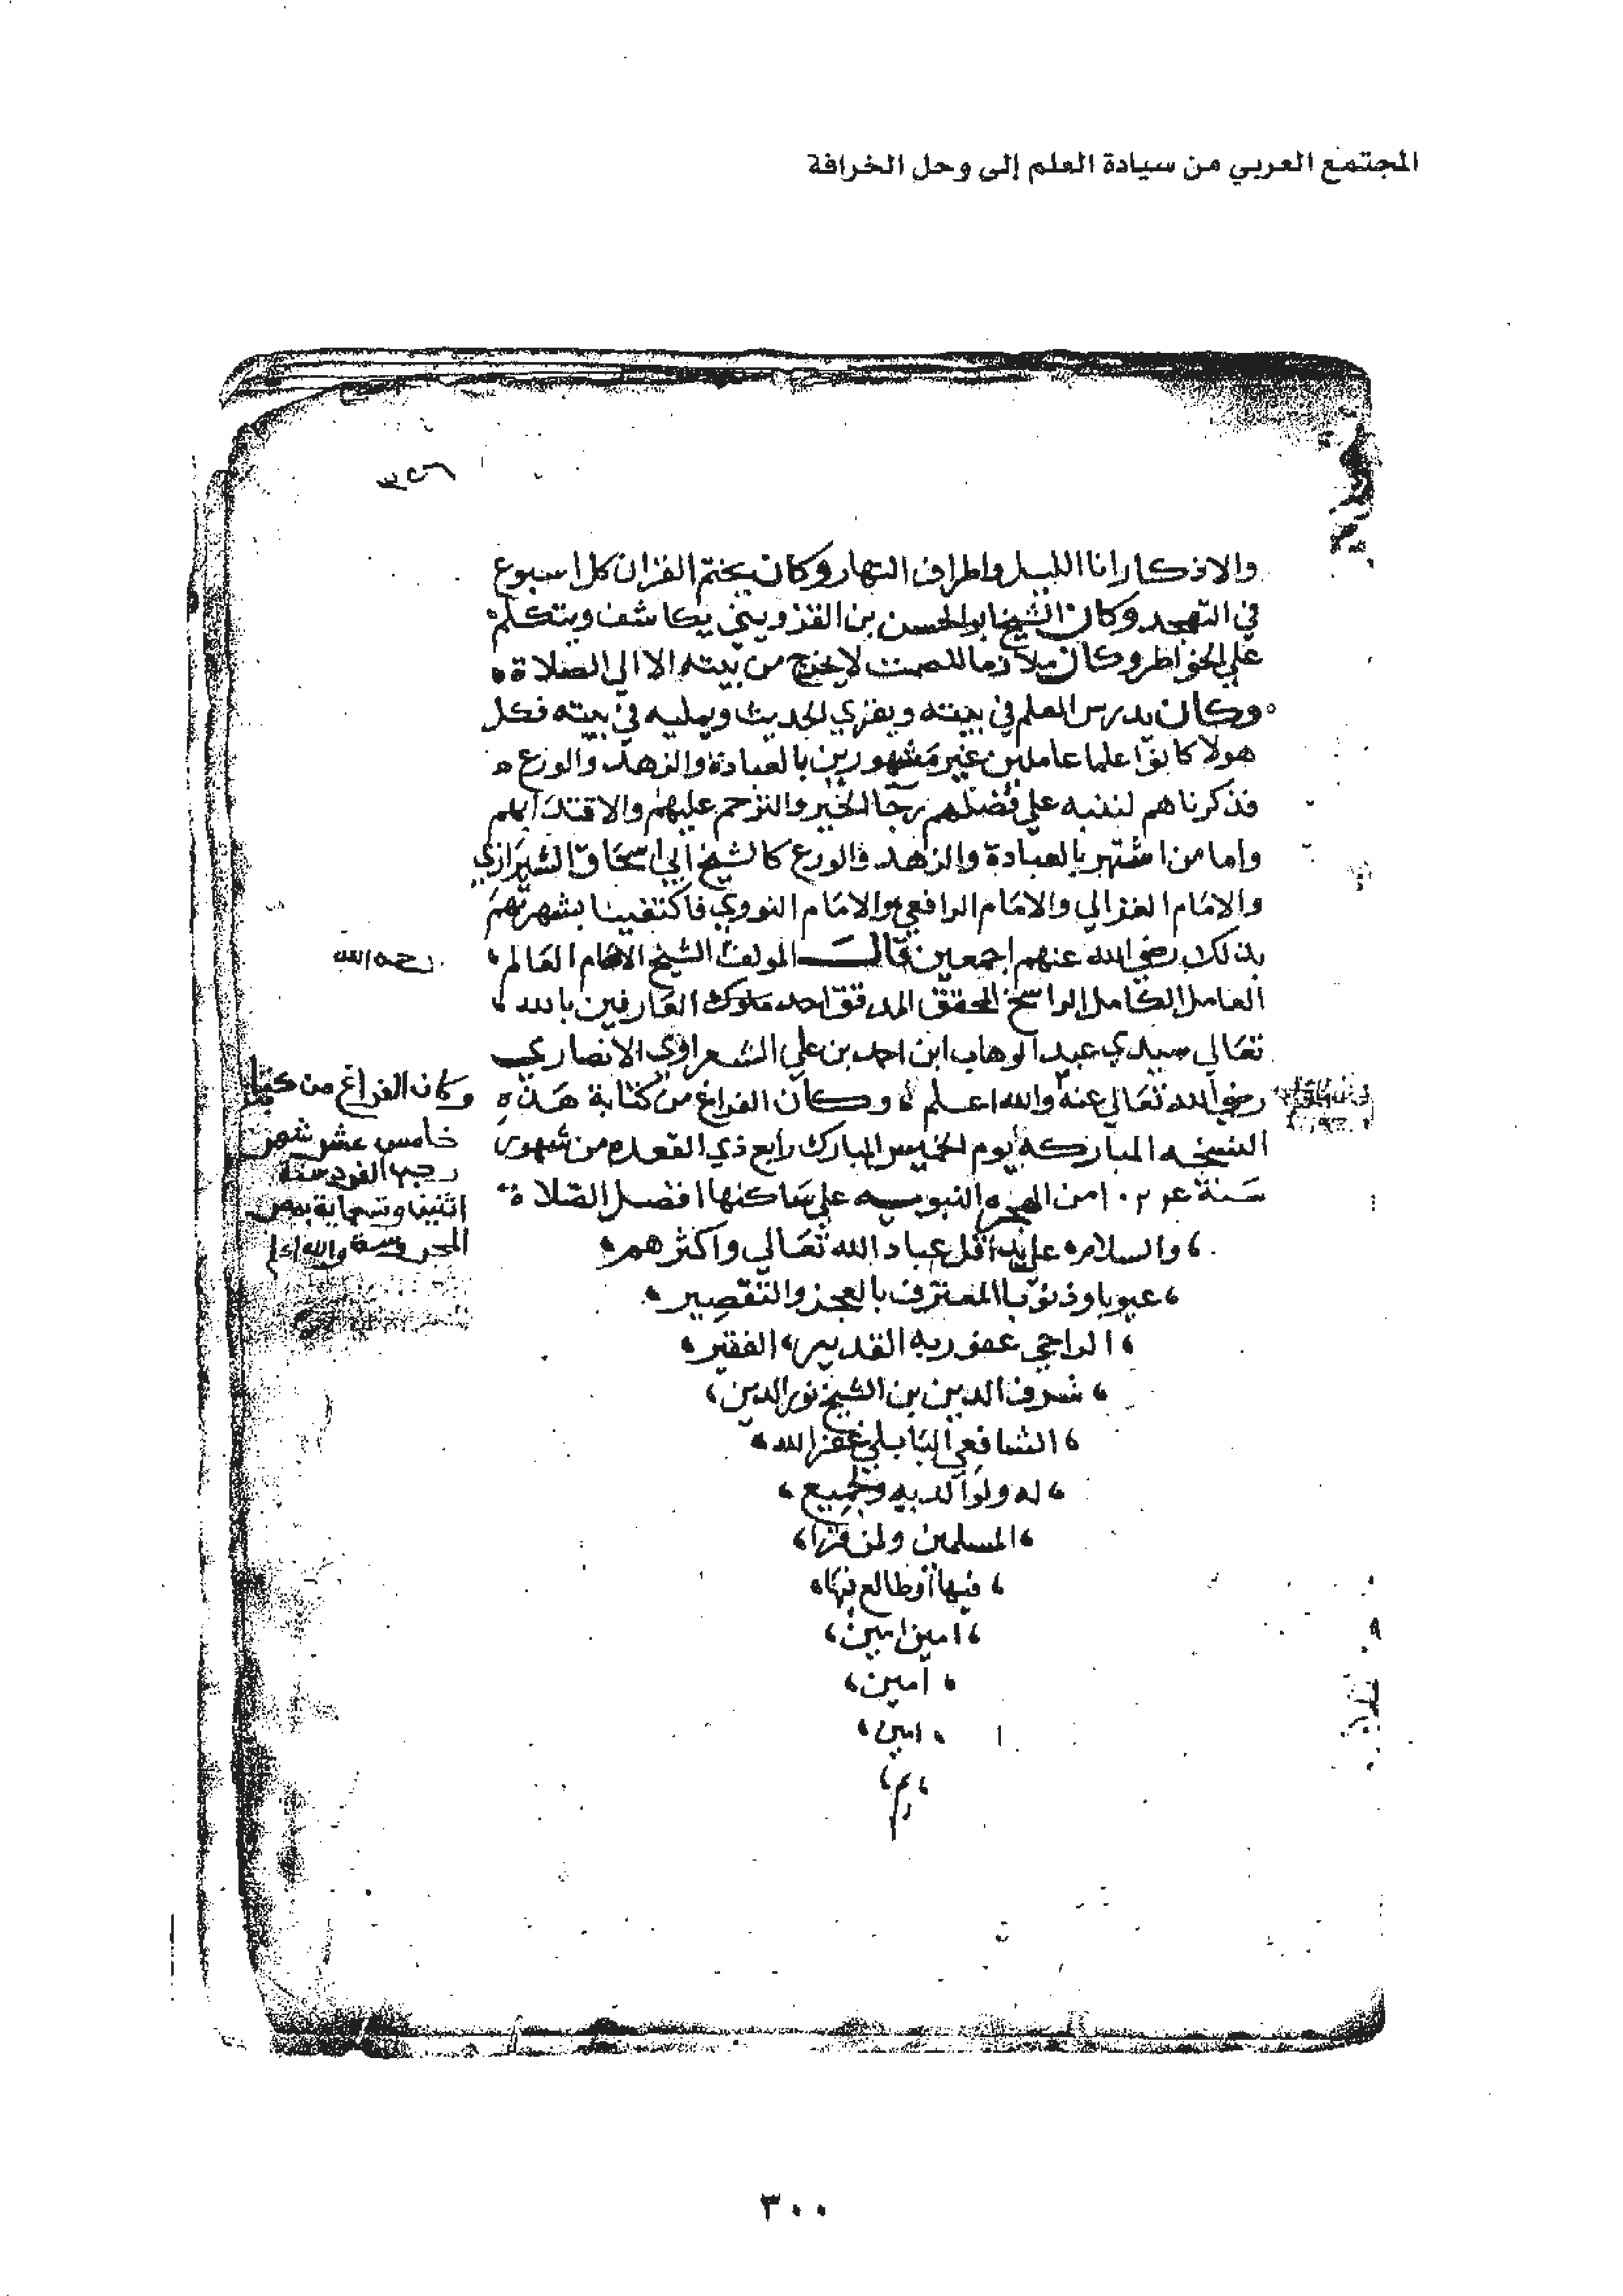 المجتمع العربي من سيادة العلم إلى وحل الخرافة
والاذكار انا الليل واطراف النهار وكان يختم القران كل اسبوع
في التهجد وكان الشيخ ابو الحسن بن القزويني يكاشف ويتكلم
علي الخواطر وكان ملازما للصمت لا يخرج من بيته الا الي الصلاة
وكان يدرس العلم في بيته ويقري الحديث ويمليه في بيته فكل
هولا كانوا علما عاملين غير مشهورين بالعبادة والزهد والورع
فذكرناهم لننبه علي فضلهم رجا الخير والترحم عليهم والاقتدا بهم
واما من اشتهر بالعبادة والزهد والورع كالشيخ ابي اسحاق الشيرازي
والامام الغزالي والامام الرافعي والامام النووي فاكتفينا بشهرتهم
بذلك رضي الله عنهم اجمعين قال المولف الشيخ الامام العالم
رحمه الله
العامل الكامل الراسخ المحقق المدقق احد ملوك العارفين بالله
تعالي سيدي عبد الوهاب ابن احمد بن علي الشعراوي الانصاري
رضي الله تعالي عنه والله اعلم وكان الفراغ من كتابة هذه
النسخه المباركه يوم الخميس المبارك رابع ذي القعده من شهور
سنة ١٠٢ من الهجره النبويه علي ساكنها افضل الصلاة
والسلام علي يد اقل عباد الله تعالي واكثرهم
عيوبا وذنوبا المعترف بالعجز والتقصير
الراجي عفو ربه القدير الفقير
شرف الدين بن الشيخ نور الدين
الشافعي البابلي غفر الله
له ولوالديه ولجميع
المسلمين ولمن قرا
فيها أو طالع فيها
امين امين
امين
امين
م
وكان الفراغ من
خامس عشر شهر
رجب الفرد سنة
اثنين وتسماية بمصر
المحروسة والله اعلم
٣٠٠